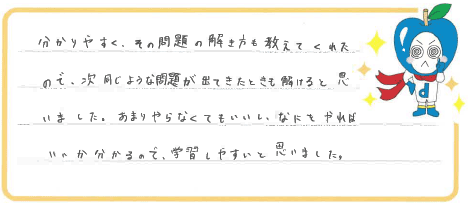 分かりやすく、その問題の解き方も教えてくれた
ので、次同じような問題が出てきたときも解けると思
いました。あまりやらなくてもいいし、なにをやれば
いいか分かるので、学習しやすいと思いました。
d